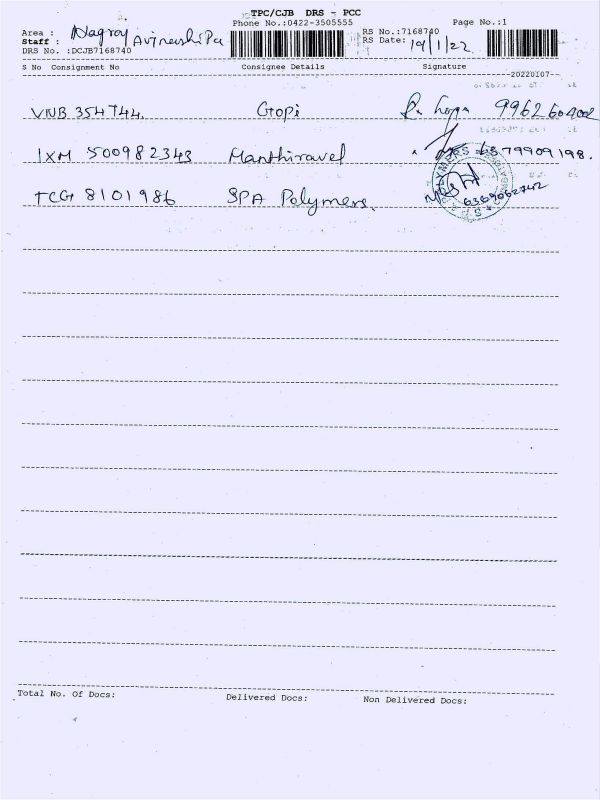 TPC/CJB DRS - PCC
Phone No.:0422-3505555 Page No.:1
Area : Nagraj Avinashi Pa RS No.:7168740
Staff : RS Date: 19/1/22
DRS No. :DCJB7168740
S No Consignment No Consignee Details Signature
--20220107--
VNB 354744. Gopi 9962604002
IXM 500982343 Manthiravel 6379909198.
TCG 8101986 SPA Polymers.
POLYMERS
6369062742
Total No. Of Docs: Delivered Docs: Non Delivered Docs: